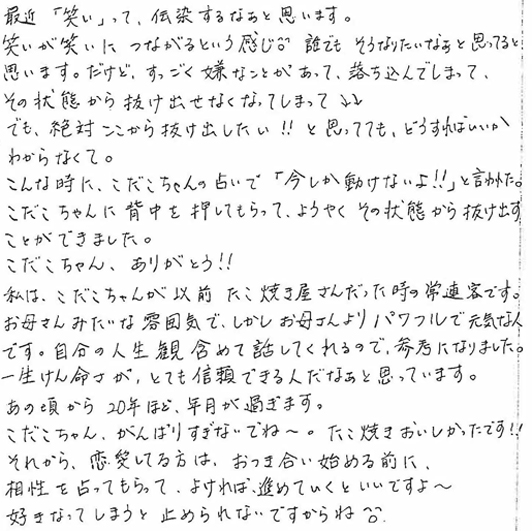 最近「笑い」って、伝染するなぁと思います。
笑いが笑いにつながるという感じ♡♡ 誰でもそうなりたいなぁと思ってると
思います。だけど、すっごく嫌なことがあって、落ち込んでしまって、
その状態から抜け出せなくなってしまって↓↓
でも、絶対ここから抜け出したい!!と思ってても、どうすればいいか
わからなくて。
こんな時に、こだこちゃんの占いで「今しか動けないよ!!」と言われた。
こだこちゃんに背中を押してもらって、ようやくその状態から抜け出す
ことができました。
こだこちゃん、ありがとう!!
私は、こだこちゃんが以前たこ焼き屋さんだった時の常連客です。
お母さんみたいな雰囲気で、しかしお母さんよりパワフルで元気な人
です。自分の人生観含めて話してくれるので、参考になりました。
一生けん命さが、とても信頼できる人だなぁと思っています。
あの頃から20年ほど、年月が過ぎます。
こだこちゃん、がんばりすぎないでね〜。たこ焼きおいしかったです!!
それから、恋愛してる方は、おつき合い始める前に、
相性を占ってもらって、よければ進めていくといいですよ〜
好きなってしまうと止められないですからね♡♡